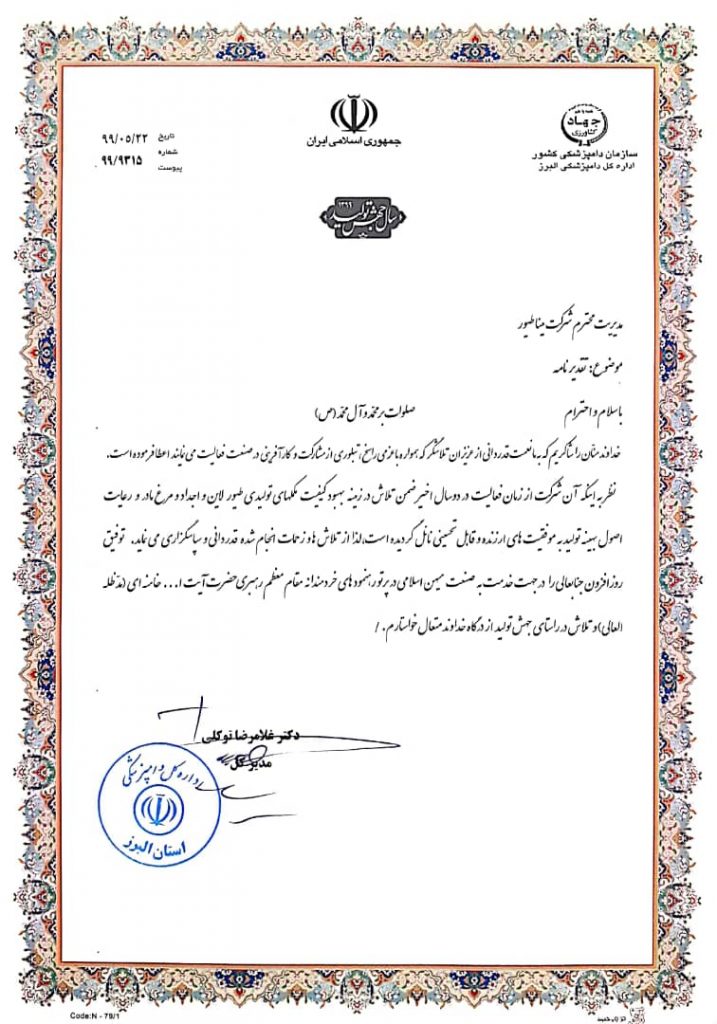 جمهوری اسلامی ایران
جهاد
کشاورزی
سازمان دامپزشکی کشور
اداره کل دامپزشکی البرز
تاریخ ۹۹/۰۵/۲۲
شماره ۹۹/۹۳۱۵
پیوست
سال جهش تولید
۱۳۹۹
مدیریت محترم شرکت مینا طیور
موضوع: تقدیر نامه
با سلام و احترام
صلوات بر محمد و آل محمد (ص)
خداوند منان را شاکریم که به ما نعمت قدردانی از عزیزان تلاشگر که همواره با عزمی راسخ، تبلوری از مشارکت و کارآفرینی در صنعت فعالیت می نمایند اعطا فرموده است.
نظر به اینکه آن شرکت از زمان فعالیت در دو سال اخیر ضمن تلاش در زمینه بهبود کیفیت تکهای تولیدی طیور لاین و اجداد و مرغ مادر و رعایت
اصول بهینه تولید به موفقیت های ارزنده و قابل تحسینی نائل گردیده است، لذا از تلاش ها و زحمات انجام شده قدردانی و سپاسگزاری می نماید. توفیق
روز افزون جنابعالی را در جهت خدمت به صنعت میهن اسلامی در پرتو رهنمود های خردمندانه مقام معظم رهبری حضرت آیت ا... خامنه ای (مدظله
العالی) و تلاش در راستای جهش تولید از درگاه خداوند متعال خواستارم. /
دکتر غلامرضا توکلی
مدیر کل
اداره کل دامپزشکی
استان البرز
Code:N - 79/1